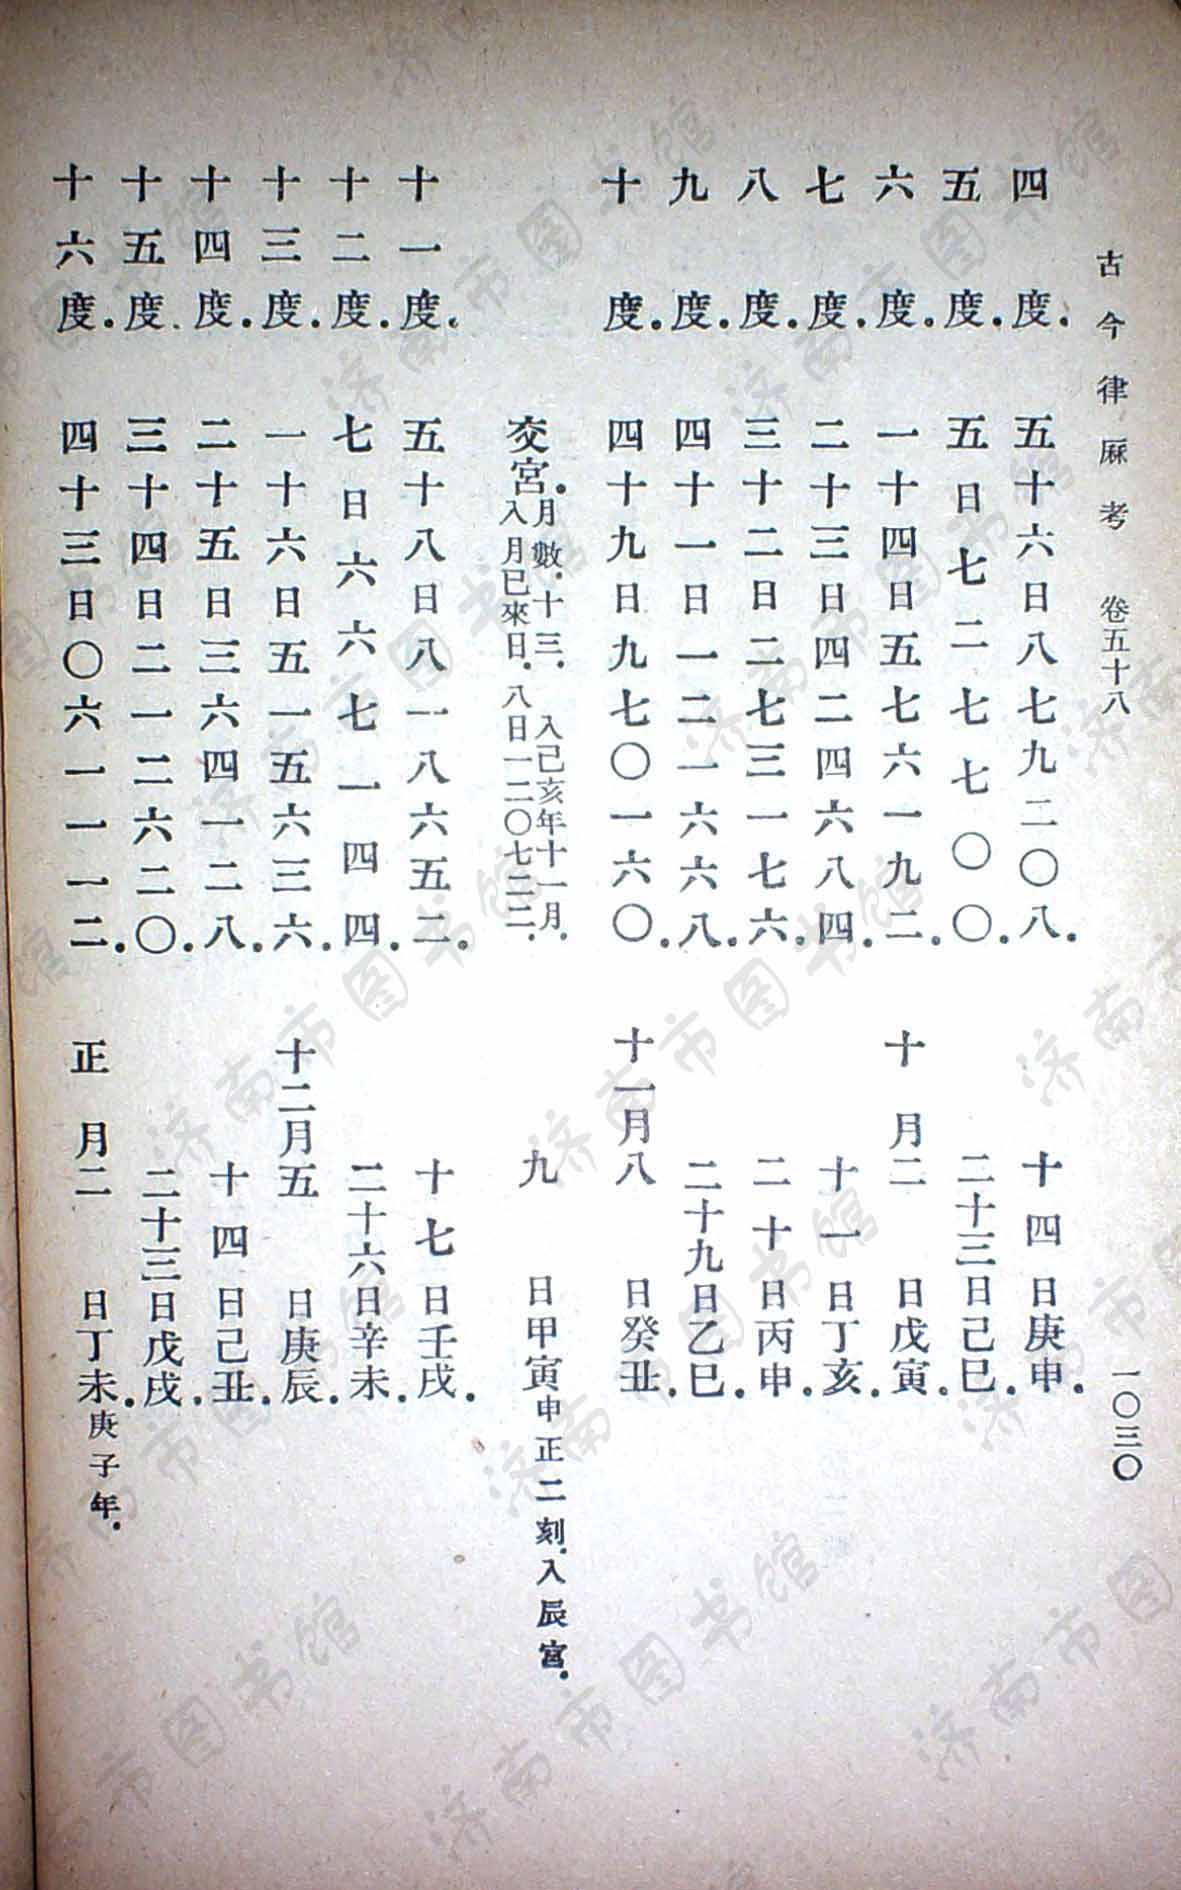 古今律厤考 卷五十八 一〇三〇
四度.五十六日八七九二〇八.十四日庚申.
五度.五日七二七七〇〇.二十三日己巳.
六度.一十四日五七六一九二.十月二日戊寅.
七度.二十三日四二四六八四.十一日丁亥.
八度.三十二日二七三一七六.二十日丙申.
九度.四十一日一二一六六八.二十九日乙巳.
十度.四十九日九七〇一六〇.十一月八日癸丑.
交宮.月數.十三.入己亥年十一月.
入月已來日.八日一二〇七二二.九日甲寅申正二刻.入辰宮.
十一度.五十八日八一八六五二.十七日壬戌.
十二度.七日六六七一四四.二十六日辛未.
十三度.一十六日五一五六三六.十二月五日庚辰.
十四度.二十五日三六四一二八.十四日己丑.
十五度.三十四日二一二六二〇.二十三日戊戌.
十六度.四十三日〇六一一一二.正月二日丁未.庚子年.
济南市图书馆